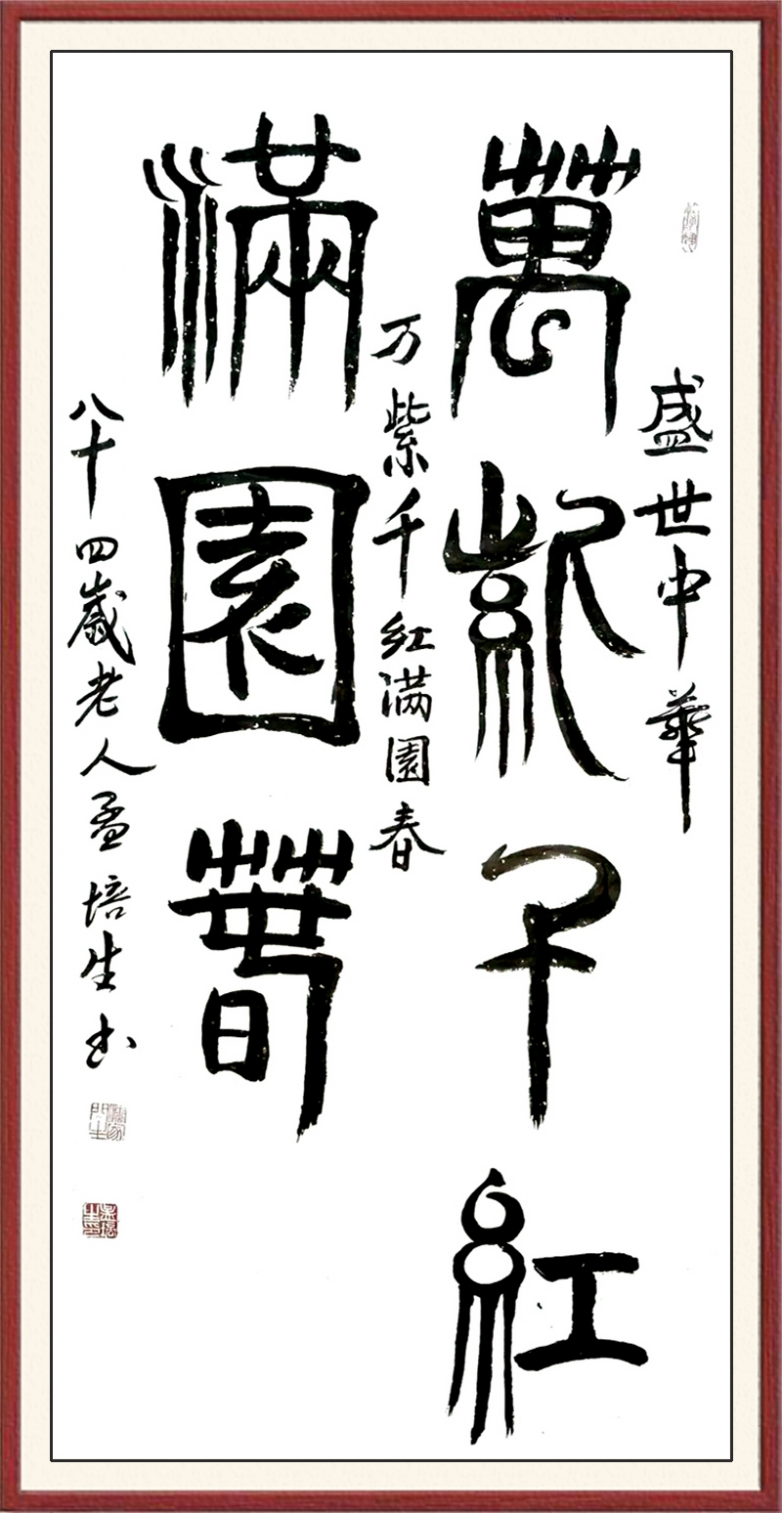 盛世中华
萬紫千紅
万紫千红满园春
滿園春
八十四歲老人孟培生书